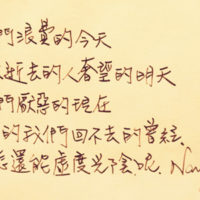 們浪費的今天
逝去的人奢望的明天
們厭惡的現在
的我們回不去的曾經.
還能虛度光陰呢.